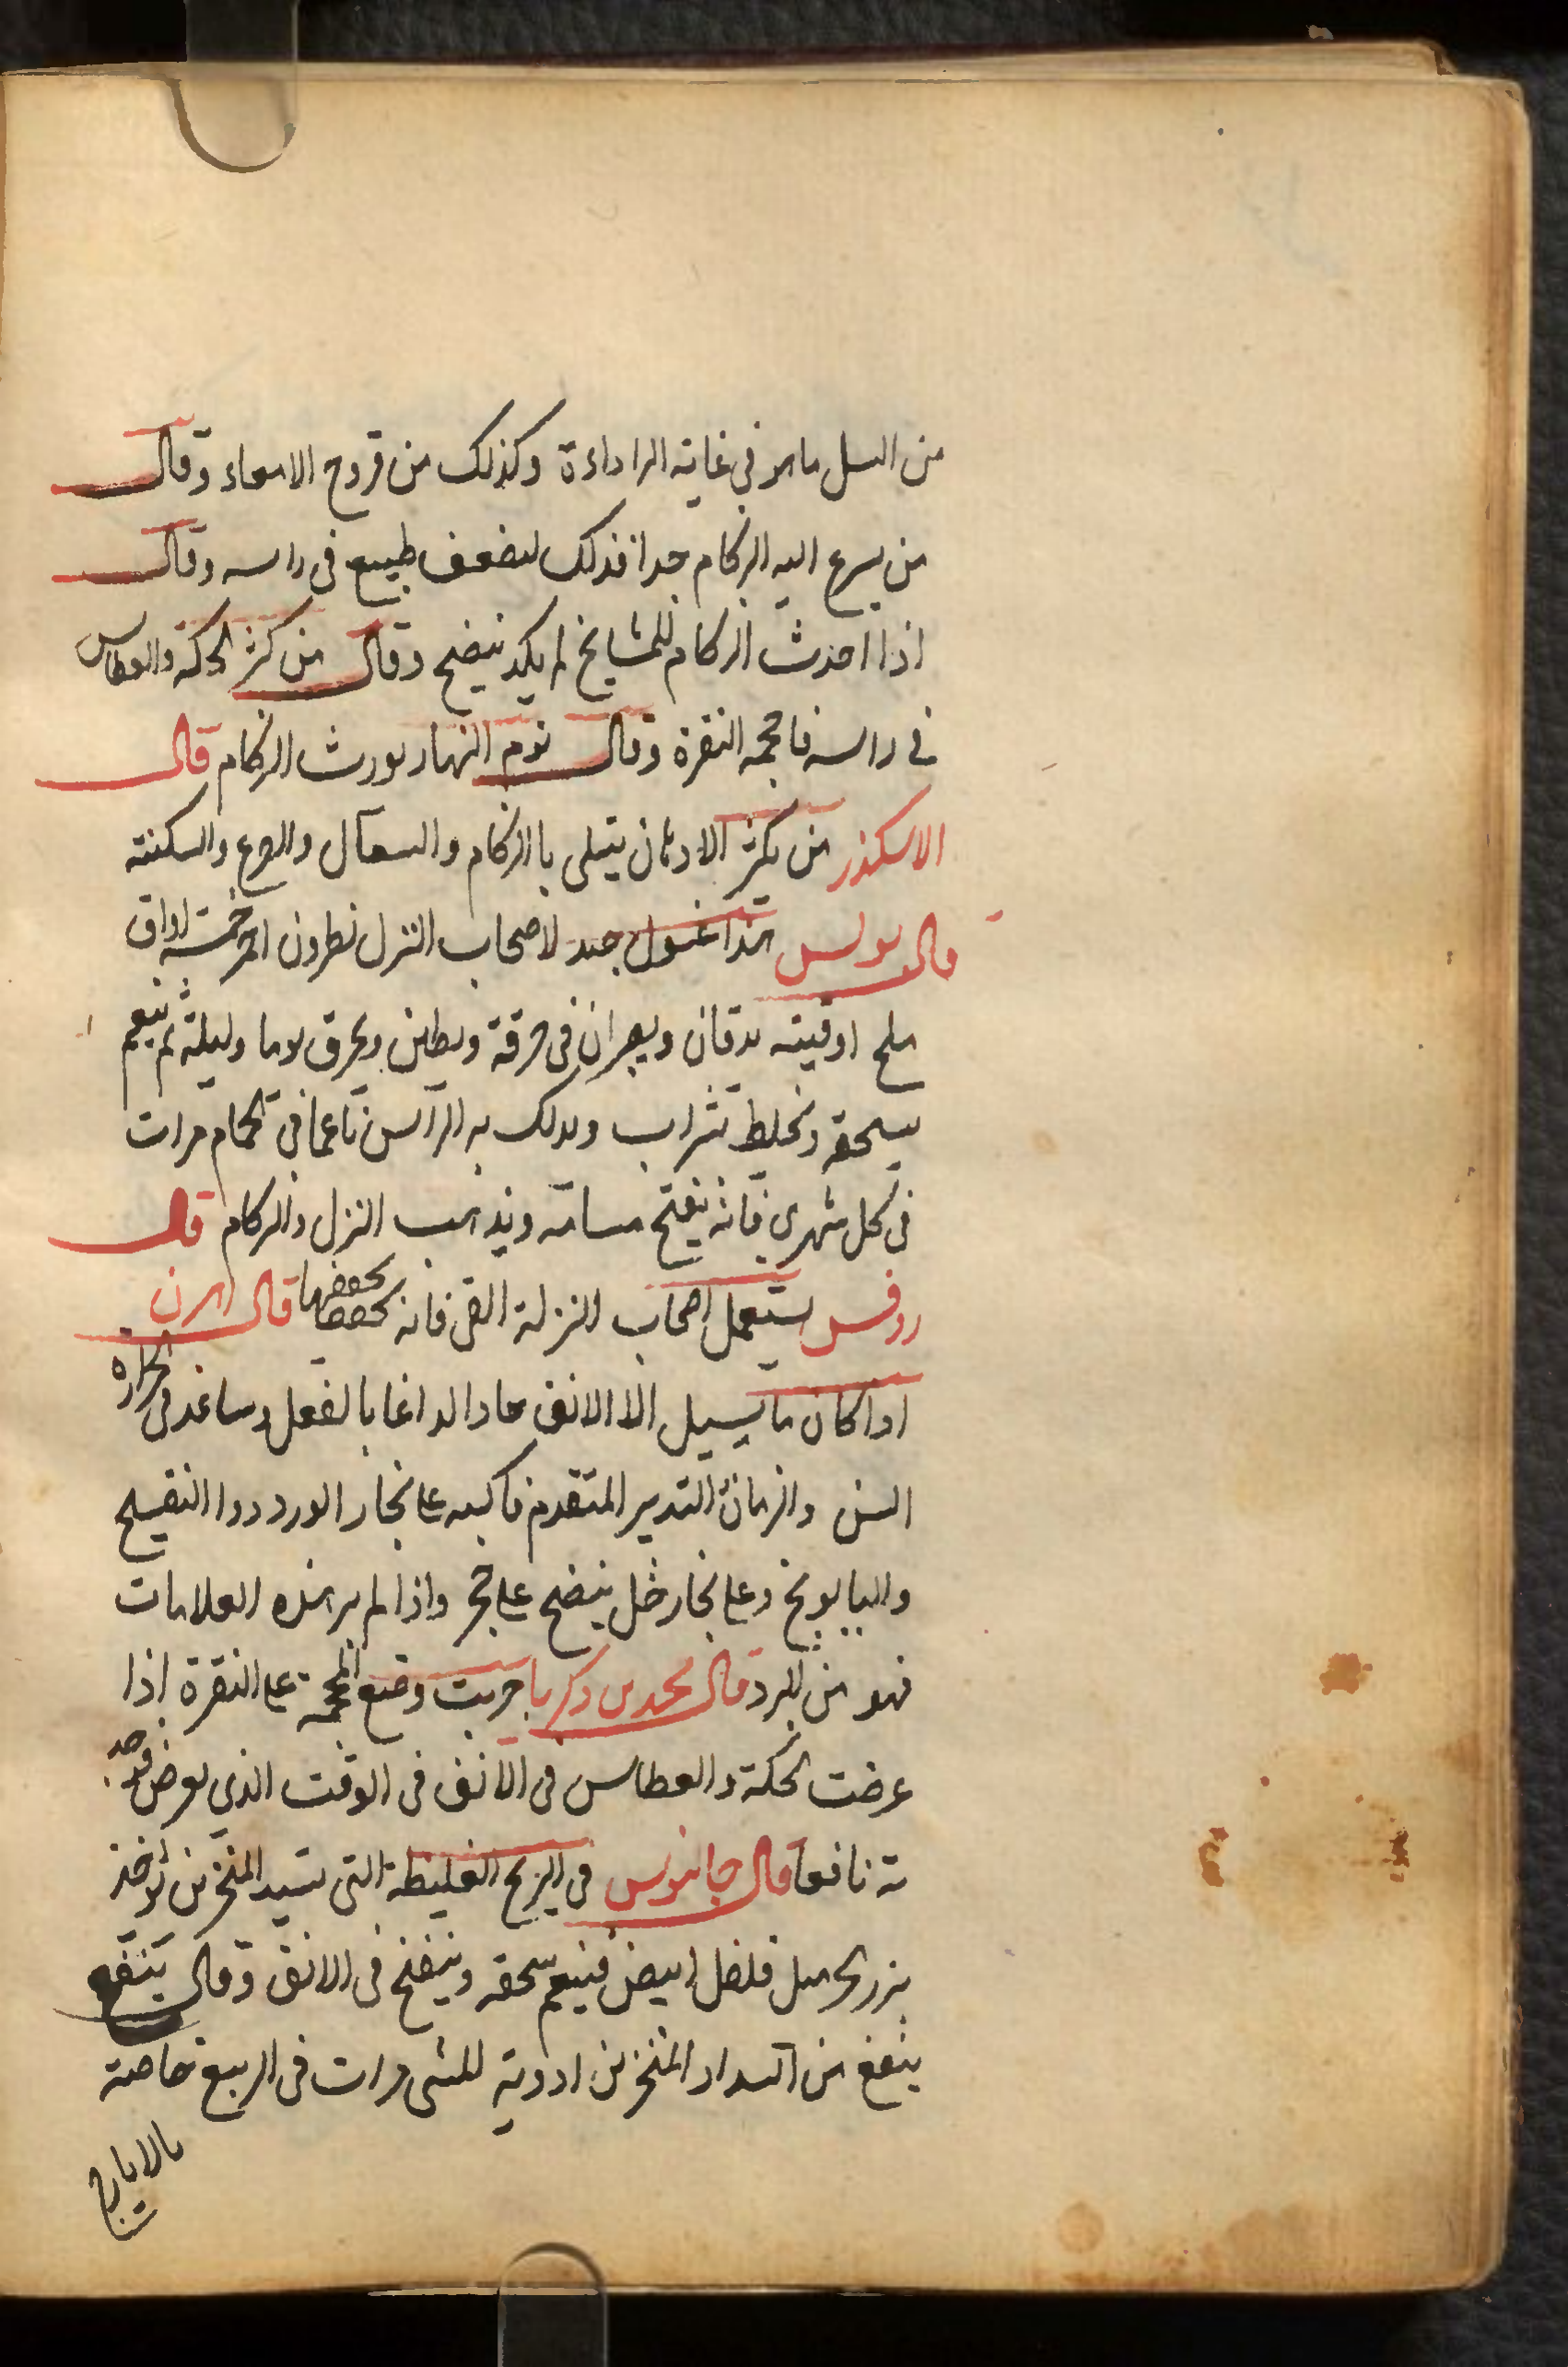 من السل ما هو في غاية الراداءة وكذلك من قروح الامعاء وقال
من يسرع اليه الزكام جدا فذلك لضعف طبيع في راسه وقال
اذا احدث الزكام للمشايخ لم يكد ينضج وقال من كثر الحكة والعطاس
في راسه فاحجمه النقرة وقال نوم النهار يورث الزكام قال
الاسكندر من يكثر الادهان يبتلى باالزكام والسعال والوجع والسكتة
قال بولس هذا غسول جيد لاصحاب النزل نطرون احمر خمسة اواق
ملح اوقيته يدقان ويصران في خرقة ويطين ويحرق يوما وليلة ثم ينعم
يسحقه ويخلط بشراب ويدلك به الراس ناعما في الحمام مرات
في كل شهرين فانه يفتح مسامه ويذهب النزل والزكام قال
روفس يستعمل اصحاب النزلة القى فانه يخففها قال اهرن
اذا كان ما يسيل الا الانف حادا لداغا بالفعل وساعد في الحرارة
السن والزمان التدبير المتقدم فاكبه على بخار الورد ورا النفسج
والبابونج وعلى بخار خل ينضح على حجر واذا لم ير هذه العلامات
فهو من البرد قال محمد بن زكريا جربت وضع المحجمة على النقرة اذا
عرضت الحكة والعطاس في الانف في الوقت الذي يعرض فوجد
ته نافعا قال جالينوس في الريح الغليظة التي تسد المنخرين تؤخذ
بزر الحرمل فلفل ابيض فينعم سحقه وينفخ في الانف وقال ينتفع
ينفع من انسداد المنخرين ادوية للمشى مرات في الربيع خاصة
بالايارج